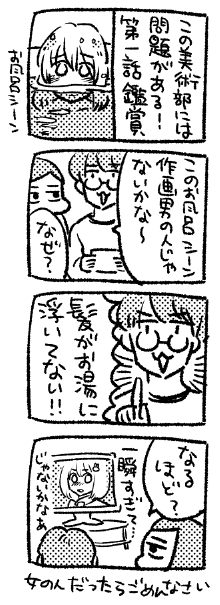 この美術部には
問題がある!
第一話 鑑賞
お風呂シーン
このお風呂シーン
作画男の人じゃ
ないかな~
なぜ?
髪がお湯に
浮いてない!!
なる
ほど?
一瞬すぎて
じゃないかなぁ
女の人だったらごめんなさい